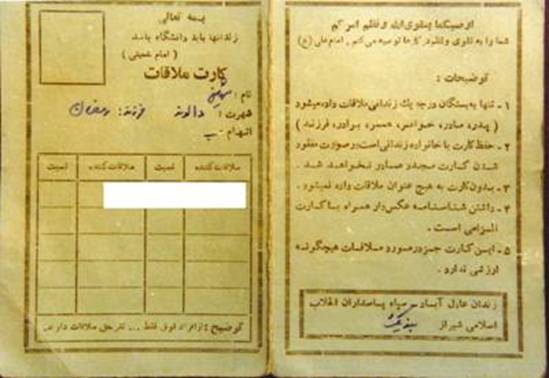 بسمه تعالی
زندانها باید دانشگاه باشد
( امام خمینی )
کارت ملاقات
نام :
شهرت : دالوند فرزند : رمضان
اتهام :
ملاقات کننده نسبت ملاقات کننده نسبت
توضیح : از افراد فوق فقط ... نفر حق ملاقات دارند.
اوصیکما بتقوی الله و نظم امرکم
شما را به تقوی و نظم در کارها توصیه می‌کنم . امام علی (ع)
توضیحات :
۱ـ تنها به بستگان درجه یک زندانی ملاقات داده میشود
( پدر ، مادر ، خواهر ، همسر ، برادر ، فرزند )
۲ـ حفظ کارت با خانواده زندانی است و در صورت مفقود
شدن کارت مجدد صادر نخواهد شد .
۳ـ بدون کارت به هیچ عنوان ملاقات داده نمیشود .
۴ـ داشتن شناسنامه عکس‌دار همراه با کارت
الزامی است .
۵ـ این کارت جز در مورد ملاقات هیچگونه
ارزشی ندارد .
زندان عادل آباد ـ سپاه پاسداران انقلاب
اسلامی شیراز